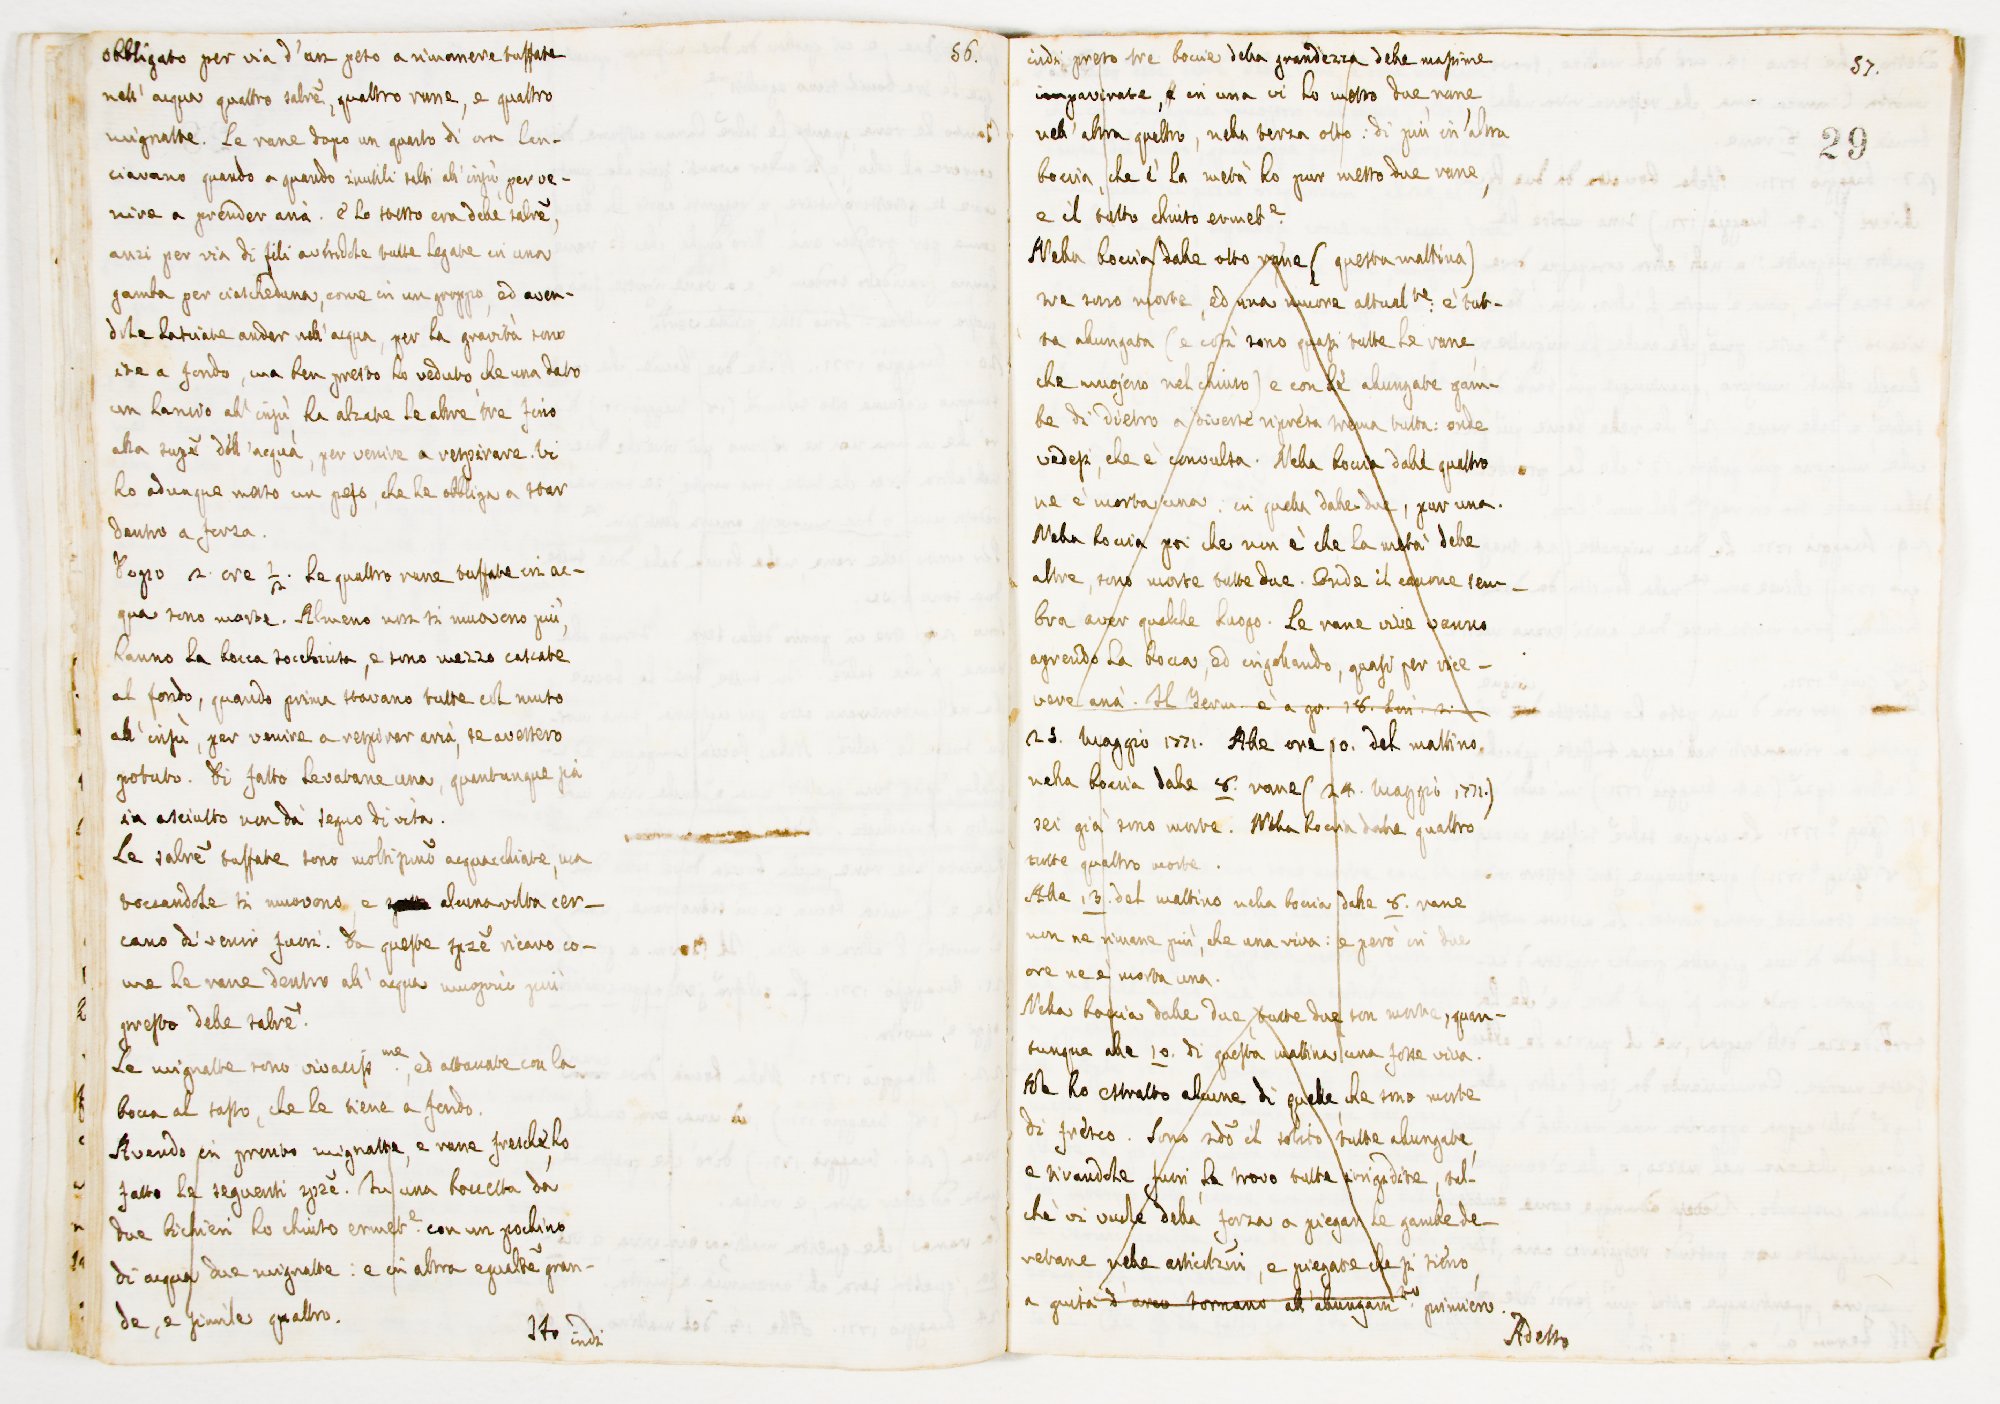 56.
obbligato per via d'un peso a rimanere tuffate
nell' acqua quattro salrē, quattro rane, e quattro
mignatte. Le rane dopo un quarto di ora lan-
ciavano quando a quando inutili salti all' insù per ve-
nire a prender aria. E lo stesso era delle salrē,
anzi per via di fili avendole tutte legate in una
gamba per ciascheduna, come in un groppo, ed aven-
dole lasciate andar nell' acqua, per la gravità sono
ite a fondo, ma ben presto ho veduto, che una dato
un lancio all' insù ha alzate le altre tre fino
alla supē dell' acqua, per venire a respirare. Vi
ho adunque messo un peso, che le obbliga a star
dentro a forza.
Dopo 2. ore 1/2. Le quattro rane tuffate in ac-
qua sono morte. Almeno non si muovono più,
hanno la bocca socchiusa, e sono mezzo cascate
al fondo, quando prima stavano tutte col muso
all' insù, per venire a respirar aria, se avessero
potuto. Di fatto levatane una, quantunque già
sia asciutto non dà segno di vita.
Le salrē tuffate sono moltipmō acquacchiate, ma
toccandole si muovono, e alcuna volta cer-
cano di venir fuori. Da queste spzē ricavo co-
me le rane dentro all' acqua muojono più
presto delle salrē.
Le mignatte sono vivacissme, ed attaccate con la
bocca al sasso, che le tiene a fondo.
Avendo in pronto mignatte, e rane fresche, ho
fatto le seguenti spzē. In una boccetta da
due bichieri ho chiuso ermete. con un pochino
di acqua due mignatte: e in altra egualtē gran-
de, e simile quattro.
Ho indi
57.
29
indi preso tre boccie della grandezza delle massime
impavirate, e in una vi ho messo due rane,
nell' altra quattro, nella terza otto: di più in altra
boccia, che è la metà ho pur messo due rane,
e il tutto chiuso ermete.
Nella boccia dalle otto rane (questa mattina)
tre sono morte, ed una muore attualte: è tut-
ta alungata (e così sono quasi tutte le rane,
che muojono nel chiuso) e con le alungate gam-
be di dietro a diverse riprese trema tutta: onde
vedesi, che è convulsa. Nella boccia dalle quattro
ne è morta una: in quella dalle due, pur una.
Nella boccia poi che non è che la metà delle
altre, sono morte tutte due. Onde il canone sem-
bra aver qualche luogo. Le rane vive vanno
aprendo la bocca, ed ingojando, quasi per rice-
vere aria. Il Term. è a gr. 18. lin. 2.
25. Maggio 1771. Alle ore 10. del mattino,
nella boccia dalle 8. rane (24. Maggio 1771.)
sei già sono morte. Nella boccia dalle quattro
tutte quattro morte.
Alle 13. del mattino nella boccia dalle 8. rane
non ne rimane più, che una viva: e però in due
ore ne è morta una.
Nella boccia dalle due, tutte due son morte, quan-
tunque alle 10. di questa mattina una fosse viva.
Ne ho estratto alcune di quelle, che sono morte
di fresco. Sono sdō il solito tutte alungate,
e tirandole fuori, le trovo tutte irrigidite, tal-
chè vi vuole della forza a piegar le gambe de-
retane nelle articolzni, e piegate che si sieno,
a guisa d'arco tornano all' alungamto primiero.
Adesso